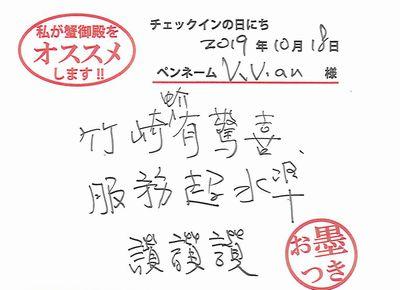 私が蟹御殿を
オススメ
します!!
チェックインの日にち
2019年10月18日
ペンネーム Vivian 様
竹崎蚧有驚喜、
服務超水準
讚讚讚
お墨
つき